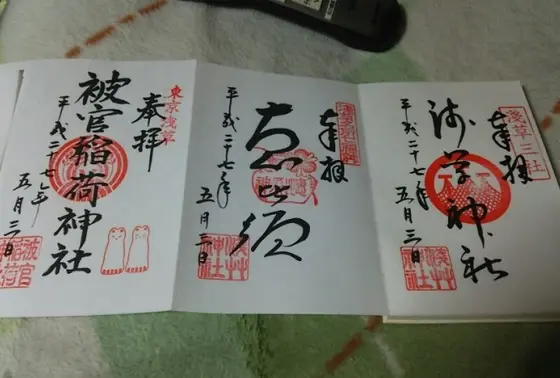 淺草三社
奉拝
浅草神社
平成二十七年五月三日
淺草神社
奉拝
恵比須
平成二十七年五月三日
淺草神社
東京浅草
奉拝
被官稲荷神社
平成二十七年五月三日
被官稲荷